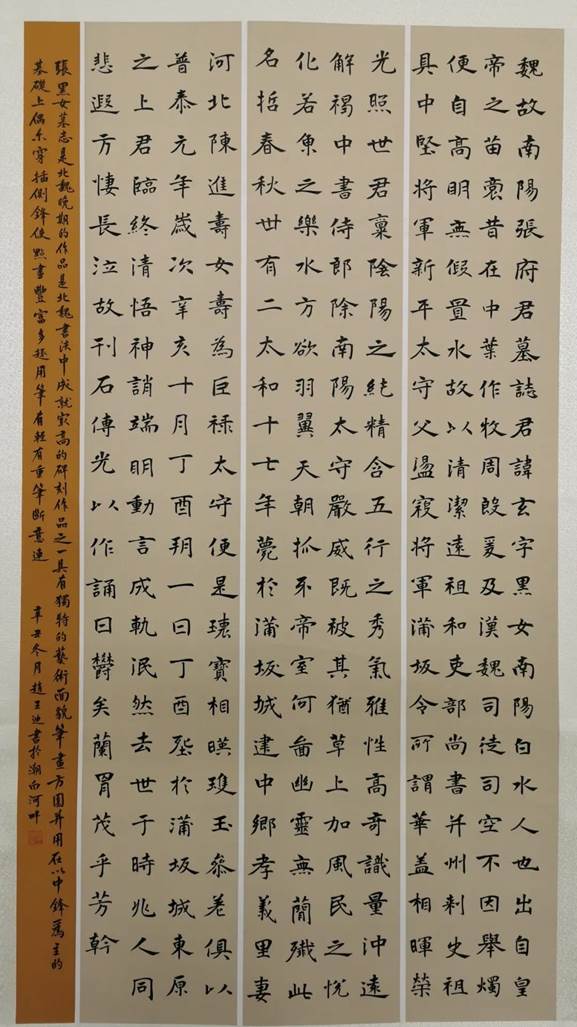 魏故南陽張府君墓誌君諱玄字黑女南陽白水人也出自皇
帝之苗裔昔在中葉作牧周殷爰及漢魏司徒司空不因舉燭
便自高明無假置水故以清潔遠祖和吏部尚書并州刺史祖
具中堅將軍新平太守父盪寇將軍蒲坂令所謂華蓋相暉榮
光照世君稟陰陽之純精含五行之秀氣雅性高奇識量沖遠
解褐中書侍郎除南陽太守嚴威既被其猶草上加風民之悅
化若魚之樂水方欲羽翼天朝抓牙帝室何啚幽靈無簡殲此
名哲春秋卅有二太和十七年薨於蒲坂城建中鄉孝義里妻
河北陳進壽女壽為巨祿太守便是瓌寶相暎瓊玉參差俱以
普泰元年歲次辛亥十月丁酉朔一日丁酉塟於蒲坂城東原
之上君臨終清悟神誚端明動言成軌泯然去世于時兆人同
悲遐方悽長泣故刊石傳光以作誦曰欝矣蘭冑茂乎芳幹
張黑女墓志是北魏晚期的作品是北魏書法中成就最高的碑刻作品之一具有獨特的藝術面貌筆畫方圓并用在以中鋒為主的
基礎上偶尔穿插側鋒使點畫豐富多趣用筆有輕有重筆斷意連 辛丑冬月趙迪書於潮白河畔